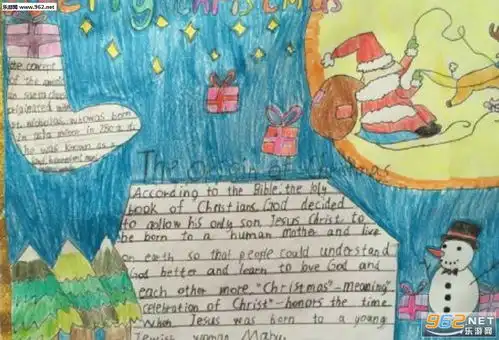 乐游网
www.962.net
Merry Christmas
the concept
of the
in santa claus
originated
st. nicholas, who was born
in 280 a.d.
he was known as a
The Origin of Christmas
According to the Bible, the holy
book of Christians, God decided
to allow his only son, Jesus Christ, to
be born to a human mother and live
on earth so that people could understand
God better and learn to love God and
each other more. "Christmas"-meaning
celebration of Christ"-honors the time
When Jesus was born to a young
Jewish woman Mary.
962.NET
乐游网